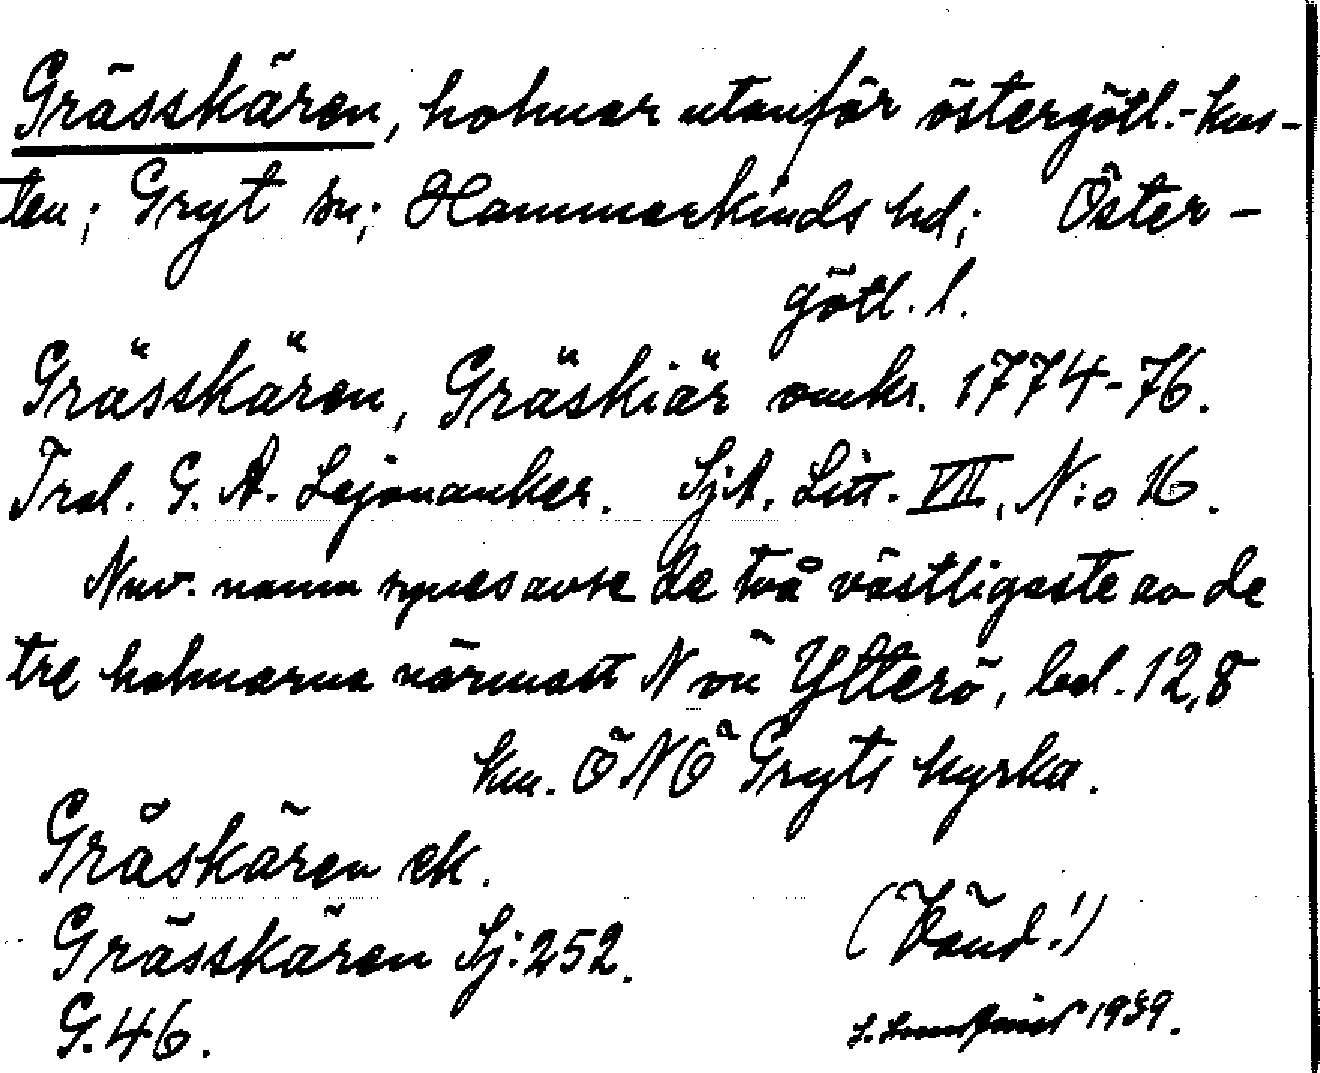 Grässkären, holmar utanför östergötl.-kus-
ten; Gryt sn; Hammarkinds hd; Öster-
götl. l.
Grässkären, Gräskiär omkr. 1774-76.
Trol. G. A. Lejonanker. SjA. Litt. VII, N:o 16.
Nuv. namn synes avse de två västligaste av de
tre holmarna närmast N om Ytterö, bel. 12,8
km. ÖNÖ Gryts kyrka.
Gråskären ek.
Grässkären Sj: 252.
G. 46.
(Vänd!)
1939.